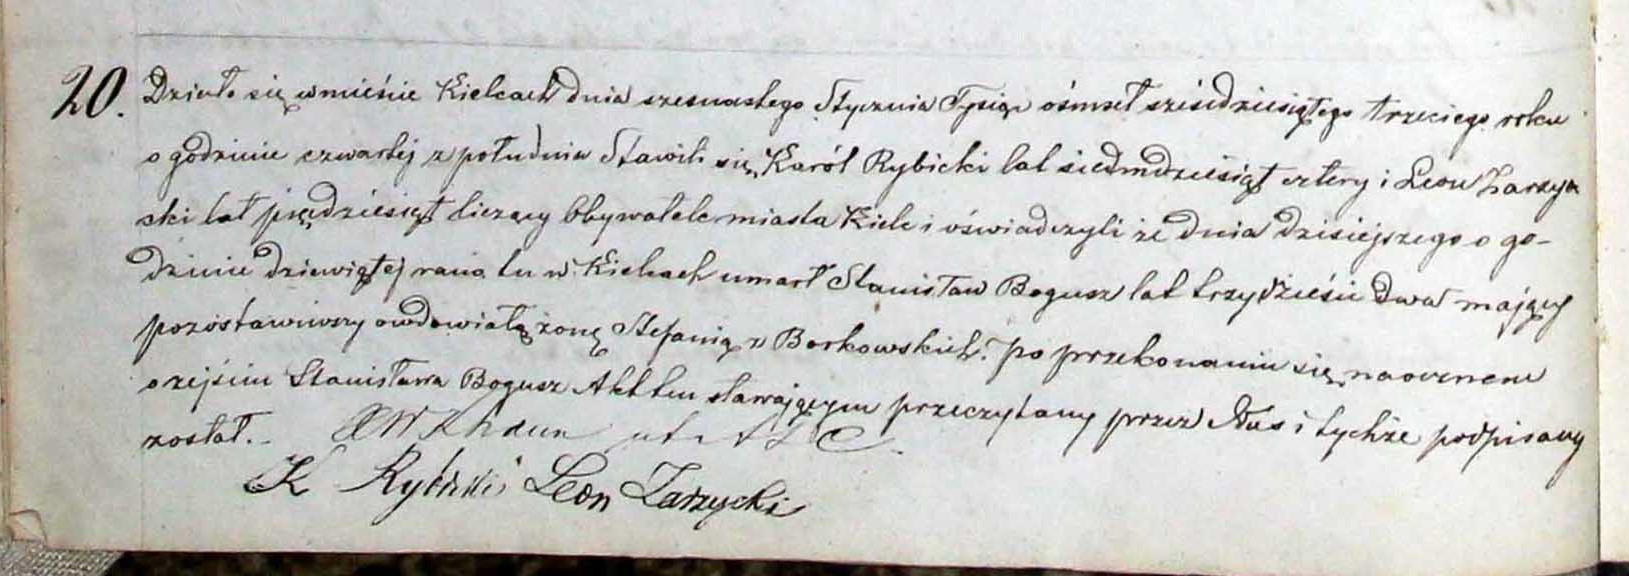 20. Działo się w mieście Kielcach dnia szesnastego Stycznia Tysiąc ośmset sześdziesiątego trzeciego roku
o godzinie czwartej z południa Stawili się Karól Rybicki lat siedmdziesiąt cztery i Leon Zarzyc
ski lat piędziesiąt liczący Obywatele miasta Kielc i oświadczyli że dnia dzisiejszego o go-
dzinie dziewiątej rano tu w Kielcach umarł Stanisław Bogusz lat trzydzieście dwa mający
pozostawiwszy owdowiałą żonę Stefanią z Borkowskich. po przekonaniu się naocznem
o zejściu Stanisława Bogusz Akt ten stawającym przeczytany przez Nas i tychże podpisany
został.-
K Rybicki Leon Zarzycki